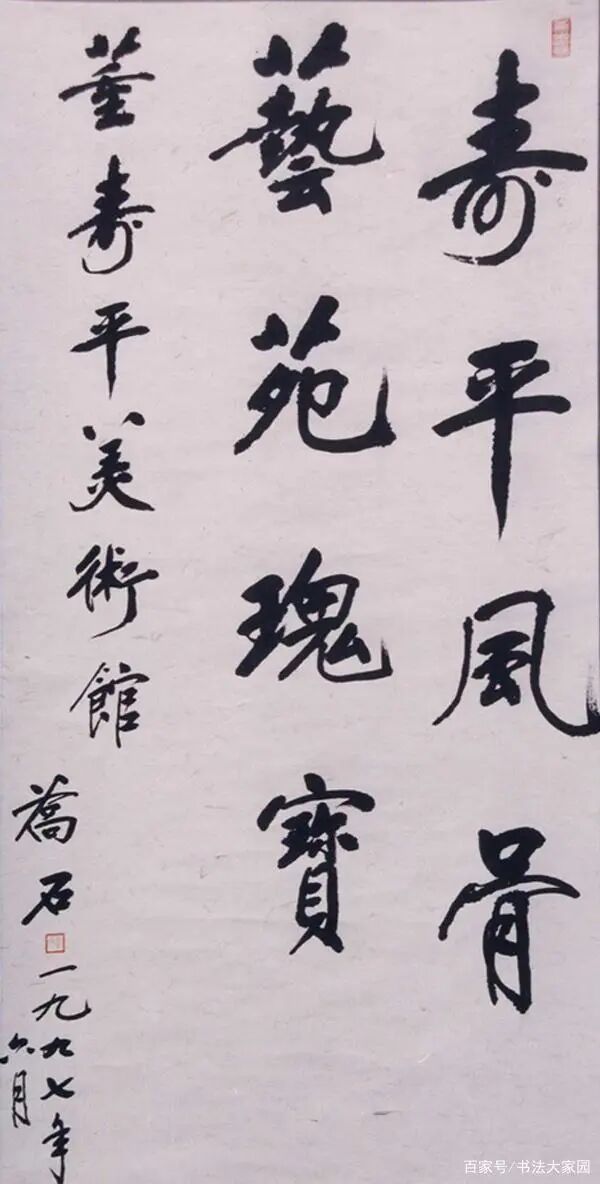 壽平風骨
藝苑瑰寶
董壽平美術館
喬石
一九九七年
六月
百家号/书法大家园